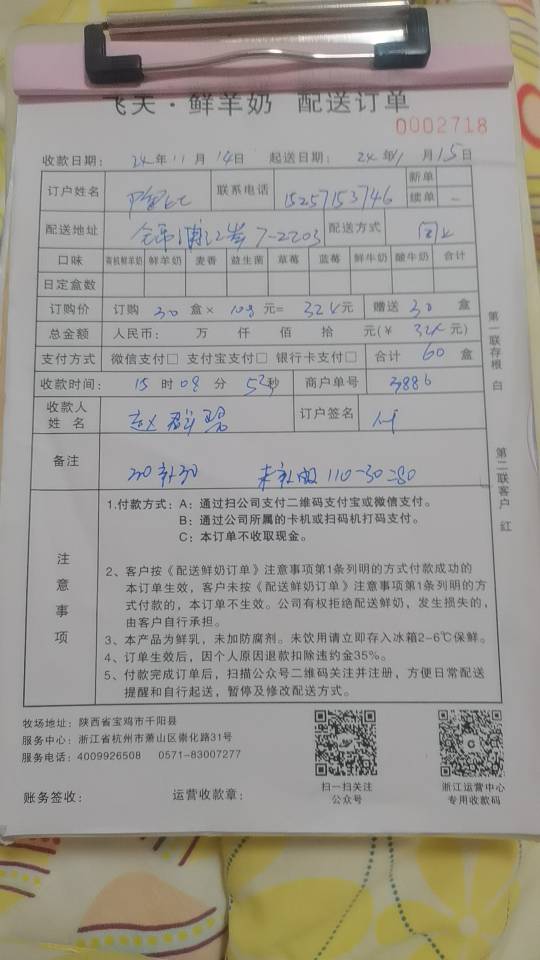 飞天·鲜羊奶 配送订单
0002718
收款日期： 24年11月14日 起送日期： 24年 月15日
订户姓名 联系电话 15257153746 新单
续单
配送地址 7-2203 配送方式
口味 有机鲜羊奶 鲜羊奶 麦香 益生菌 草莓 蓝莓 鲜牛奶 酸牛奶 合计
日定盒数
订购价 订购 30 盒× 元= 324元 赠送 30 盒
总金额 人民币： 万 仟 佰 拾 元(￥ 324 元)
支付方式 微信支付□ 支付宝支付□ 银行卡支付□ 合计 60 盒
收款时间： 15 时 09 分 52秒 商户单号 3886
收款人姓名 赵群 订户签名
备注 30 补30 未补 110-30=80
注意事项
1.付款方式：A：通过扫公司支付二维码支付宝或微信支付。
B：通过公司所属的卡机或扫码机打码支付。
C：本订单不收取现金。
2、客户按《配送鲜奶订单》注意事项第1条列明的方式付款成功的
本订单生效，客户未按《配送鲜奶订单》注意事项第1条列明的方
式付款的，本订单不生效。公司有权拒绝配送鲜奶，发生损失的，
由客户自行承担。
3、本产品为鲜乳，未加防腐剂。未饮用请立即存入冰箱2-6℃保鲜。
4、订单生效后，因个人原因退款扣除违约金35%。
5、付款完成订单后，扫描公众号二维码关注并注册，方便日常配送
提醒和自行起送，暂停及修改配送方式。
第一联存根 白
第二联客户 红
牧场地址：陕西省宝鸡市千阳县
服务中心：浙江省杭州市萧山区崇化路31号
服务电话：4009926508 0571-83007277
扫一扫关注
公众号
浙江运营中心
专用收款码
账务签收： 运营收款章：